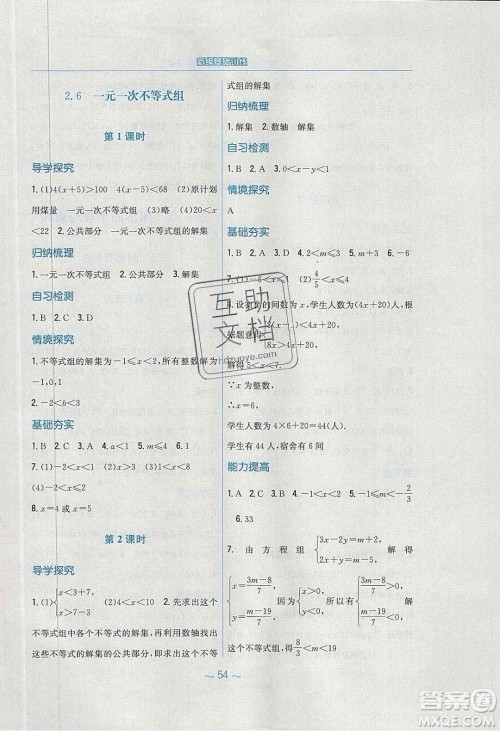 新编基础训练
2.6　一元一次不等式组
第1课时
导学探究
1.(1)4(x+5)>100　4(x-5)<68　(2)原计划
用煤量　一元一次不等式组　(3)略　(4)20<x
<22　2.公共部分　一元一次不等式组
归纳梳理
1.一元一次不等式组　2.公共部分　3.解集
自习检测
1.B　2.C　3.D
情境探究
1.不等式组的解集为-1≤x<2,所有整数解为
-1,0,1
2.-2<b<3
基础夯实
1.B　2.C　3.A　4.a<1　5.m≤4　6.5
7.(1)-1<x≤2　(2)x>3　(3)x>2
(4)-2<x≤2
8.x=4或x=5
第2课时
导学探究
1.(1){x<3+7,
x>7-3　2.先求出这个
不等式组中各个不等式的解集,再利用数轴找出
这些不等式的解集的公共部分,即求出了这个不等
式组的解集
归纳梳理
1.解集　2.数轴　解集
自习检测
1.B　2.A　3.0<x-y<1
情境探究
A
基础夯实
1.B　2.A　3.D　4.B　5.C　6.2<m≤3
7.(1)-1<x≤2　(2)4/5<x≤4
的间数为x,学生人数为(4x+20)人,根
8x>4x+20,
解得5<x<7.
∵x为整数,
∴x=6.
学生人数为4×6+20=44(人).
学生有44人,宿舍有6间
能力提高
1.A　2.C　3.B　4.-1<m<0　5.-1≤m<-2/3
6.33
7.由方程组{3x-2y=m+2,
2x+y=m-5,　解得
{x=(3m-8)/7
y=(m-19)/7,　{(3m-8)/7>0,
(m-19)/7<0,　得8/3<m<19
~54~
互助
文档
hdzuoye.com
答案圈
MXQE.COM